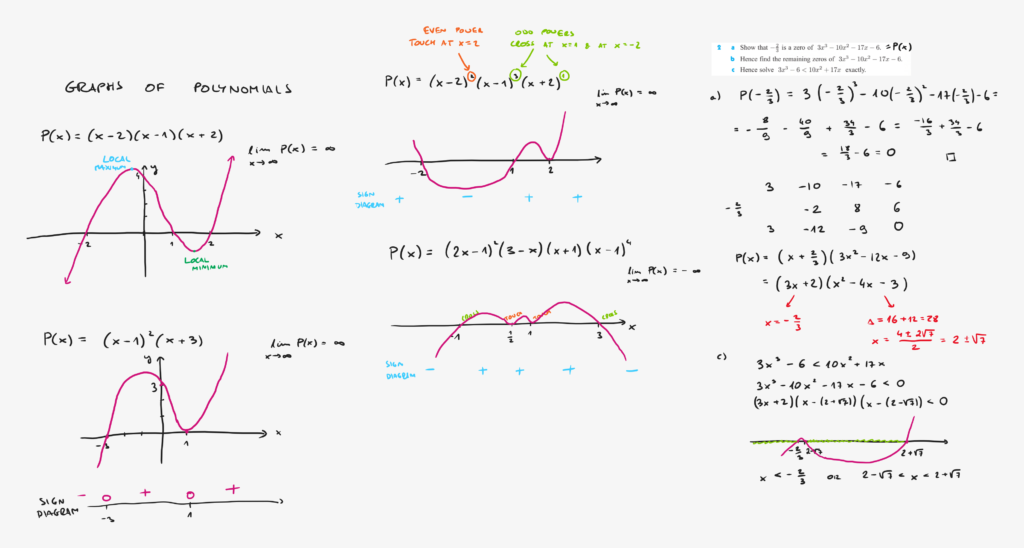 GRAPHS OF POLYNOMIALS
P(x) = (x-2)(x-1)(x+2)
lim P(x) = ∞
x→∞
LOCAL
MINIMUM
4
y
-2
1
2
x
LOCAL
MINIMUM
P(x) = (x-1)²(x+3)
lim P(x) = ∞
x→∞
y
3
-3
1
x
- 0 + 0 +
SIGN
DIAGRAM
-3
1
EVEN POWER
TOUCH AT x=2
ODD POWERS
CROSS AT x=1 & AT x=-2
P(x) = (x-2)²(x-1)³(x+2)¹
lim P(x) = ∞
x→∞
-2
1
2
SIGN
DIAGRAM
+ - + +
P(x) = (2x-1)²(3-x)(x+1)(x-1)⁴
lim P(x) = -∞
x→∞
CROSS
TOUCH
TOUCH
CROSS
-1
1/2
1
3
x
SIGN
DIAGRAM
- + + + -
2 a Show that -2/3 is a zero of 3x³ - 10x² - 17x - 6. = P(x)
b Hence find the remaining zeros of 3x³ - 10x² - 17x - 6.
c Hence solve 3x³ - 6 < 10x² + 17x exactly.
a) P(-2/3) = 3(-2/3)³ - 10(-2/3)² - 17(-2/3) - 6 =
= -8/9 - 40/9 + 34/3 - 6 = -16/3 + 34/3 - 6
= 18/3 - 6 = 0 □
3 -10 -17 -6
-2/3 -2 8 6
3 -12 -9 0
P(x) = (x + 2/3)(3x² - 12x - 9)
= (3x+2)(x² - 4x - 3)
x = -2/3
Δ = 16+12 = 28
x = (4 ± 2√7)/2 = 2 ± √7
c)
3x³ - 6 < 10x² + 17x
3x³ - 10x² - 17x - 6 < 0
(3x+2)(x - (2+√7))(x - (2-√7)) < 0
-2/3
2-√7
2+√7
x < -2/3 OR 2-√7 < x < 2+√7